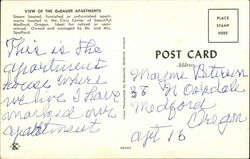 VIEW OF THE DeBAUER APARTMENTS
Steam heated, furnished or unfurnished apart-
ments located in the Civic Center of beautiful
Medford, Oregon. Ideal for retired or semi-
retired. Owned and managed by Mr. and Mrs.
Spafford.
This is the
apartment
house where
we live I have
marked our
apartment
POST CARD
PLACE
STAMP
HERE
Mayme Peterson
38 N Oakdale
Medford
Oregon
apt 16
K